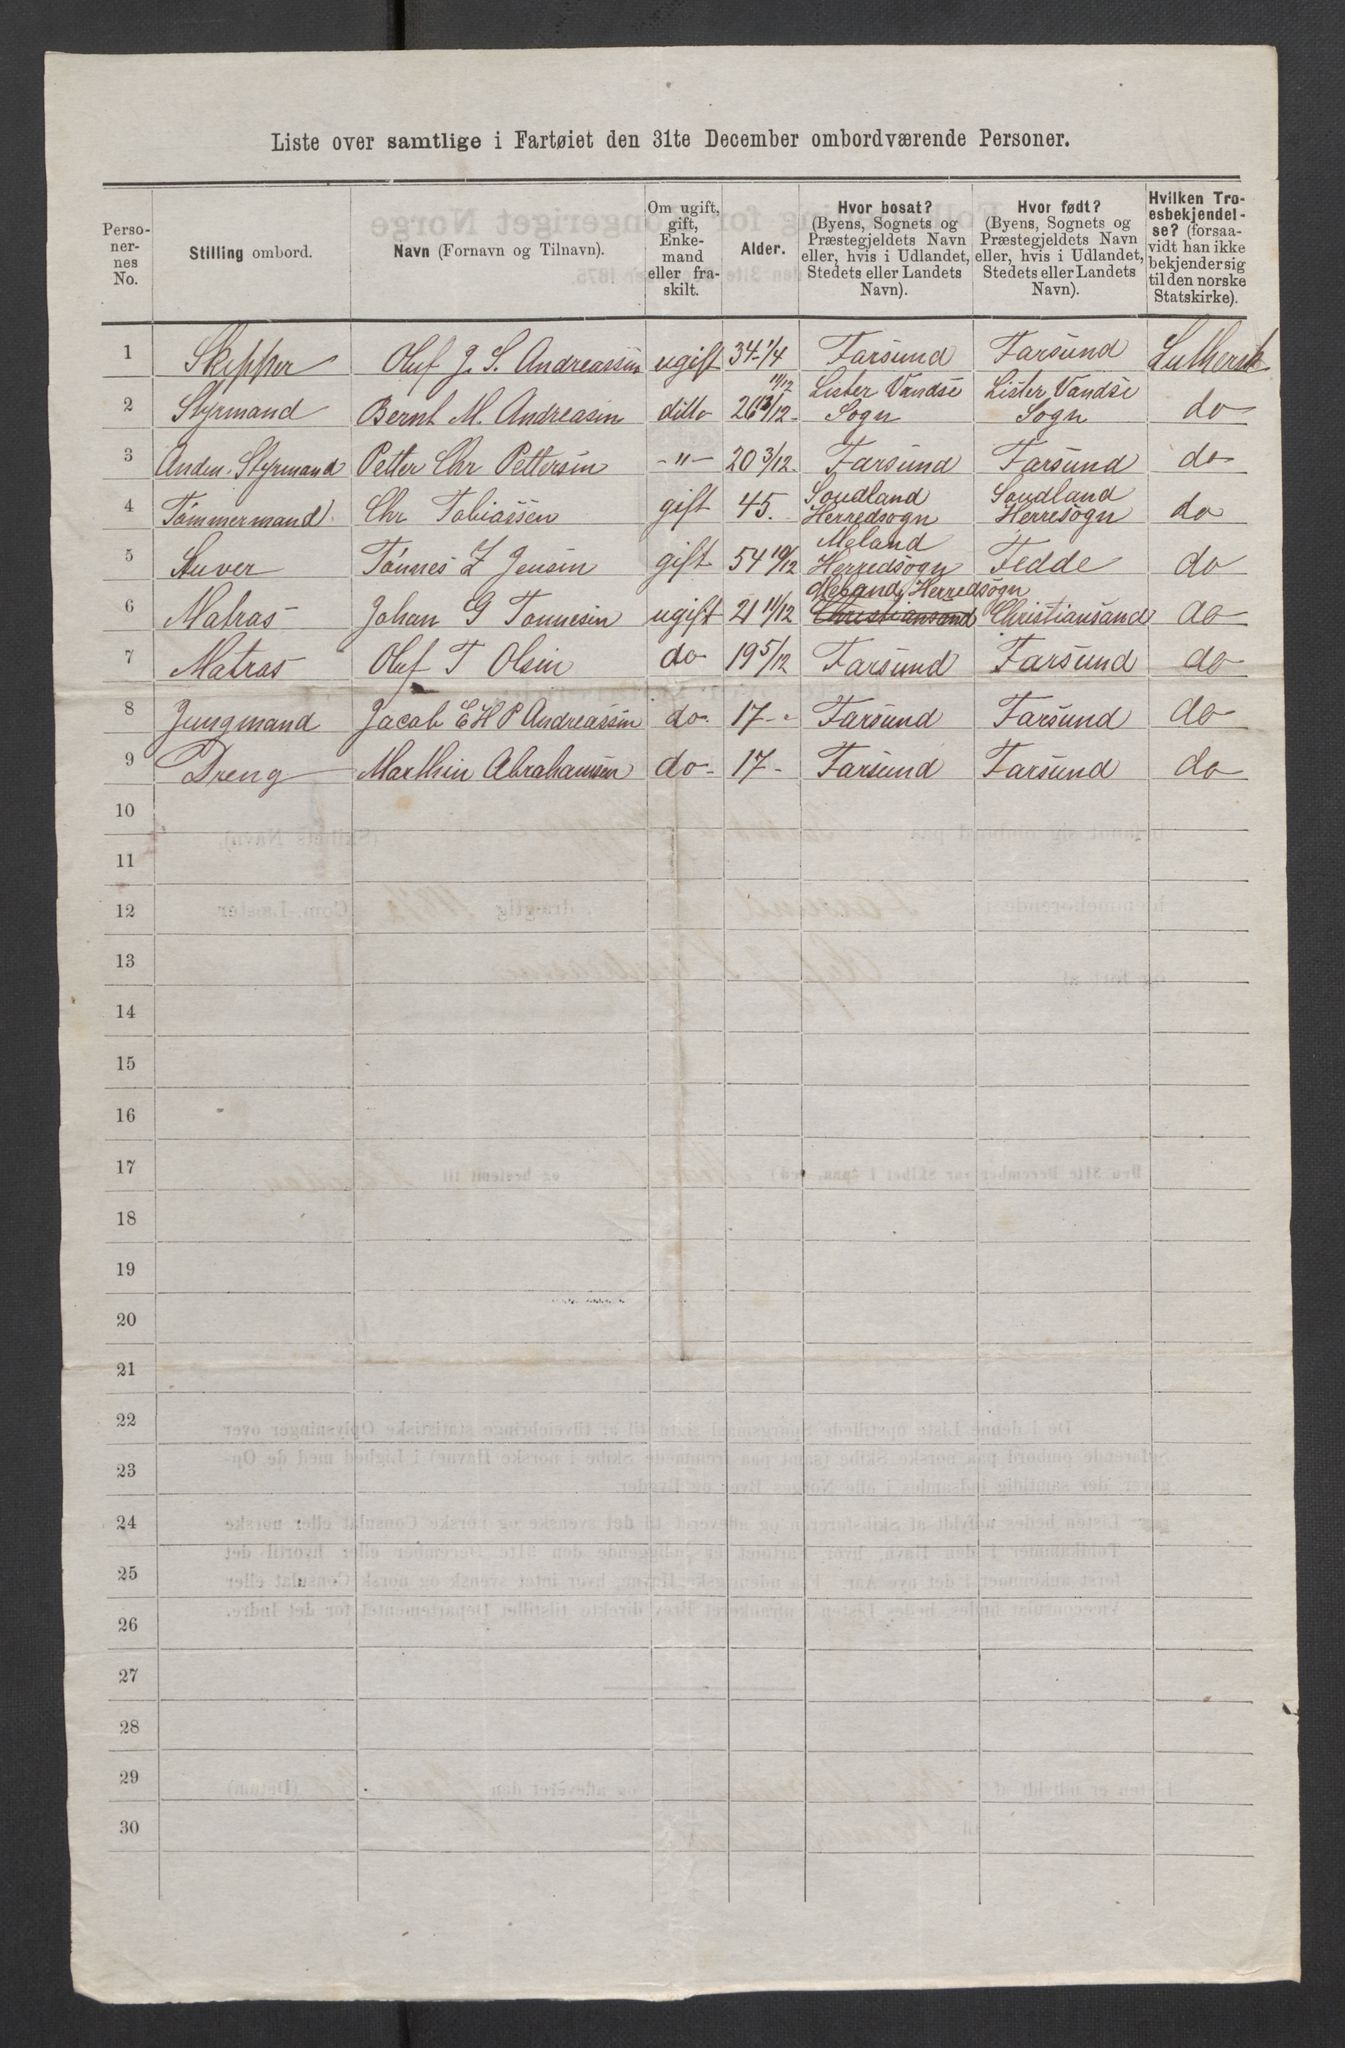 Liste over samtlige i Fartøiet den 31te December ombordværende Personer.
Perso-
nernes
No.
Stilling ombord.
Navn (Fornavn og Tilnavn).
Om ugift,
gift,
Enke-
mand
eller fra-
skilt.
Alder.
Hvor bosat?
(Byens, Sognets og
Præstegjeldets Navn
eller, hvis i Udlandet,
Stedets eller Landets
Navn).
Hvor født?
(Byens, Sognets og
Præstegjeldets Navn
eller, hvis i Udlandet,
Stedets eller Landets
Navn).
Hvilken Tro-
esbekjendel-
se? (forsaa-
vidt han ikke
bekjender sig
til den norske
Statskirke).
1 Skipper Oluf J. S. Andreassen ugift 34 1/4 Farsund Farsund Luthersk
2 Styrmand Bernt M. Andreasin ditto 26 11/12 Lister Vandse Sogn Lister Vandse Sogn do
3 Anden Styrmand Petter Chr Pettersin -"- 20 3/12 Farsund Farsund do
4 Tömmermand Chr Tobiassen gift 45. Soudland Herredsogn Soudland Herresogn do
5 Stuver Tönnes Z Jensin gift 54 10/12 Meland Herredsogn Fedde do
6 Matros Johan G Tonnesin ugift 21 11/12 Meland Herredsogn Christiansand Christiansand do
7 Matros Oluf T Olsin do 19 5/12 Farsund Farsund do
8 Jungmand Jacob E H P Andreassin do. 17 - Farsund Farsund do
9 Dreng Marthin Abrahamsen do - 17 - Farsund Farsund do
10
11
12
13
14
15
16
17
18
19
20
21
22
23
24
25
26
27
28
29
30